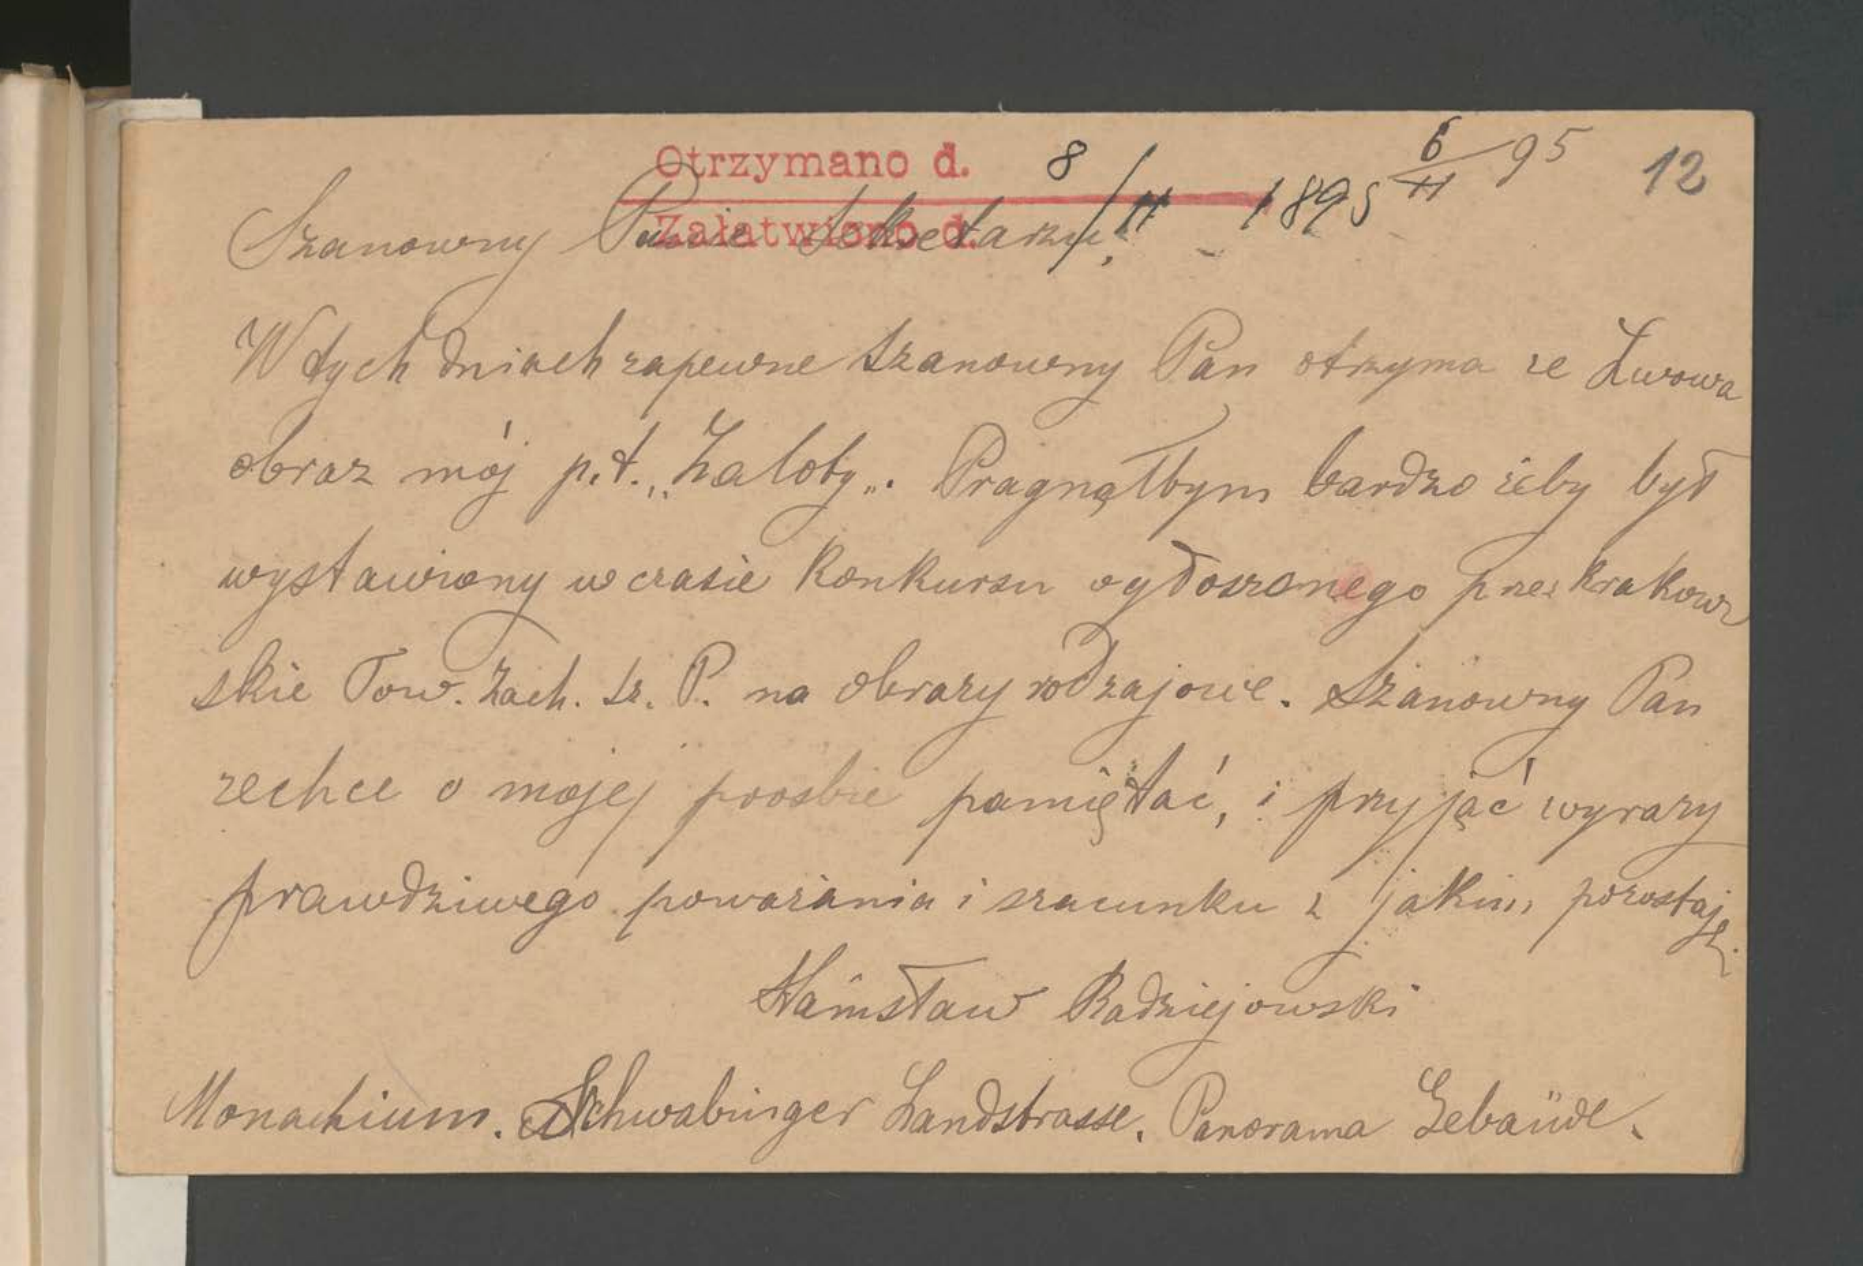 Otrzymano d. 8/II 1895
6/II 95
12
Załatwiono d.
Szanowny Panie Sekretarzu,
W tych dniach zapewne Szanowny Pan otrzyma ze Lwowa
obraz mój p.t. „Żałoby„. Pragnąłbym bardzo żeby był
wystawiony w czasie Konkursu ogłoszonego przez krakow
skie Tow. Zach. Sz. P. na obrazy rodzajowe. Szanowny Pan
zechce o mojej prosbie pamiętać, i przyjąć wyrazy
prawdziwego poważania i szacunku z jakim pozostaję.
Stanisław Radziejowski
Monachium. Schwabinger Landstrasse. Panorama Gebaüde.